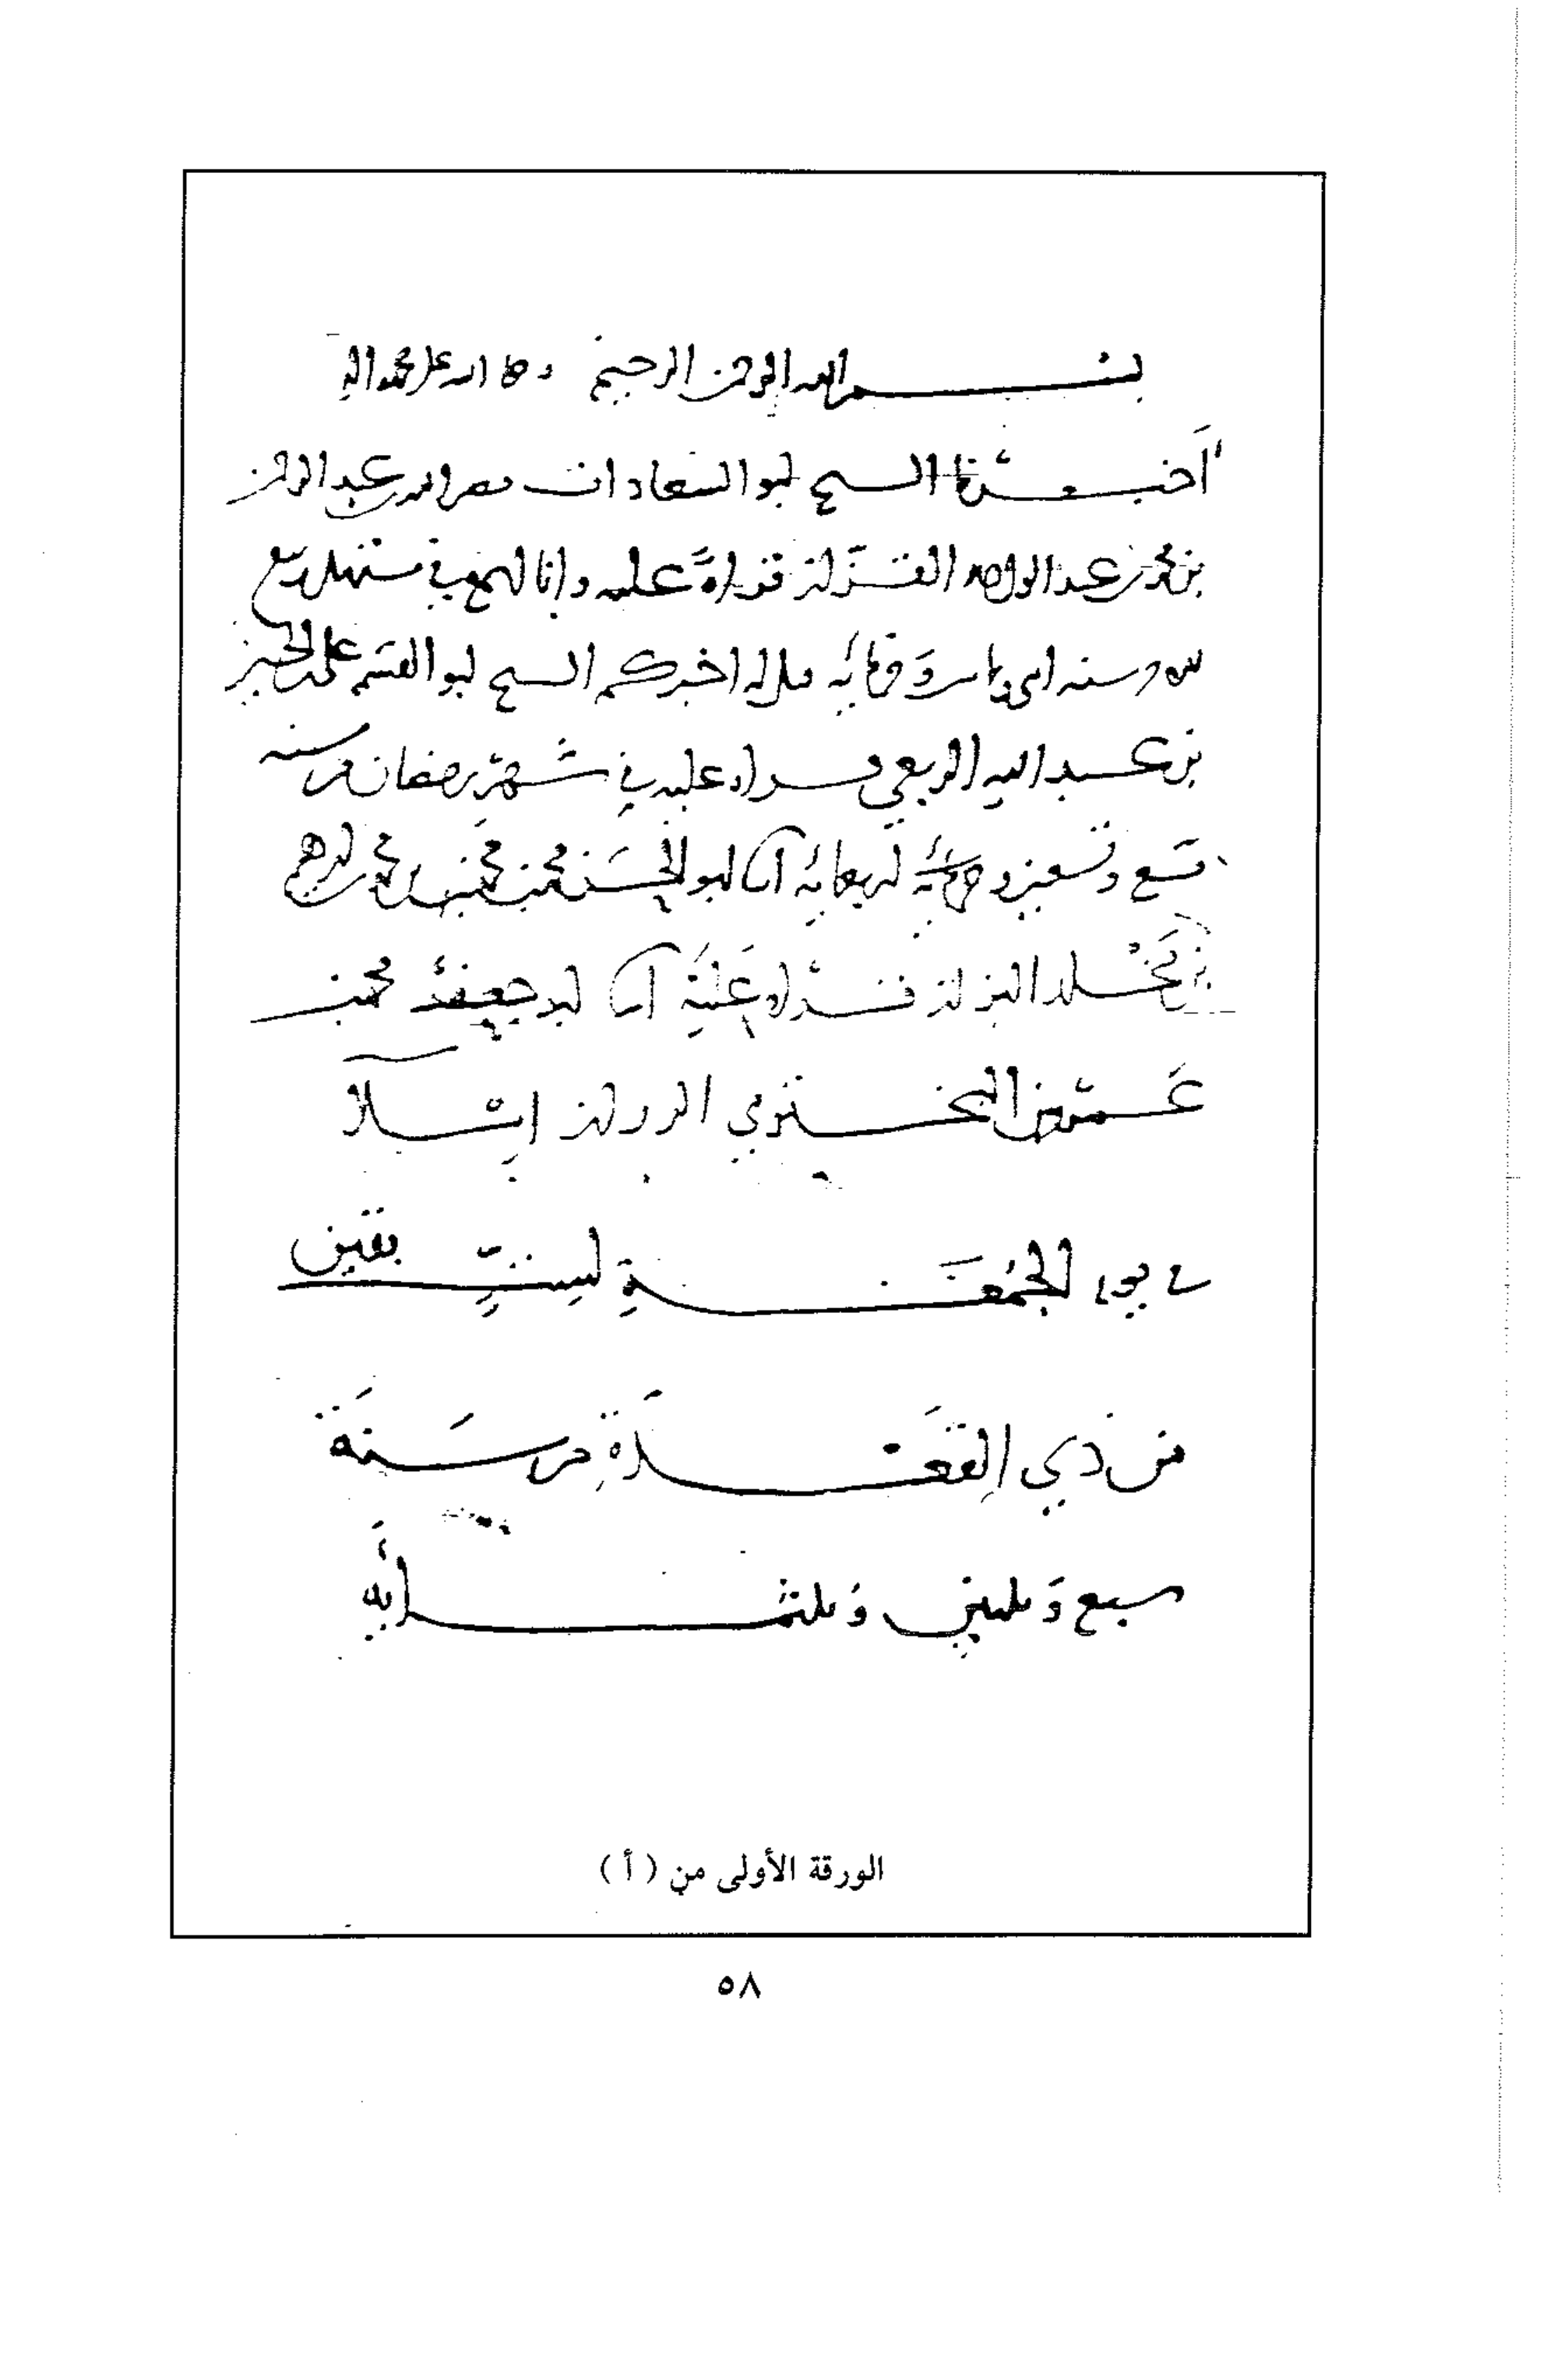 بسم الله الرحمن الرحيم وصلى الله على محمد واله
أخبرنا الشيخ ابو السعادات نصر الله بن عبد الرحمن
بن محمد بن عبد الواحد القزاز قراءة عليه وانا اسمع في مستهل ربيع
سنة وخمسمائة قال له اخبركم الشيخ ابو القسم علي بن الحسين
بن عبد الله الربعي قراءة عليه في شهر رمضان من سنة
تسع وتسعين واربعمائة انا ابو الحسن محمد بن محمد بن محمد بن ابرهيم
بن مخلد البزاز قراءة عليه انا ابو جعفر محمد بن
عمرو بن البختري الرزاز إملاء
في يوم الجمعة لست بقين
من ذي القعدة من سنة
سبع وثلثين وثلثمائة
الورقة الأولى من (أ)
٥٨